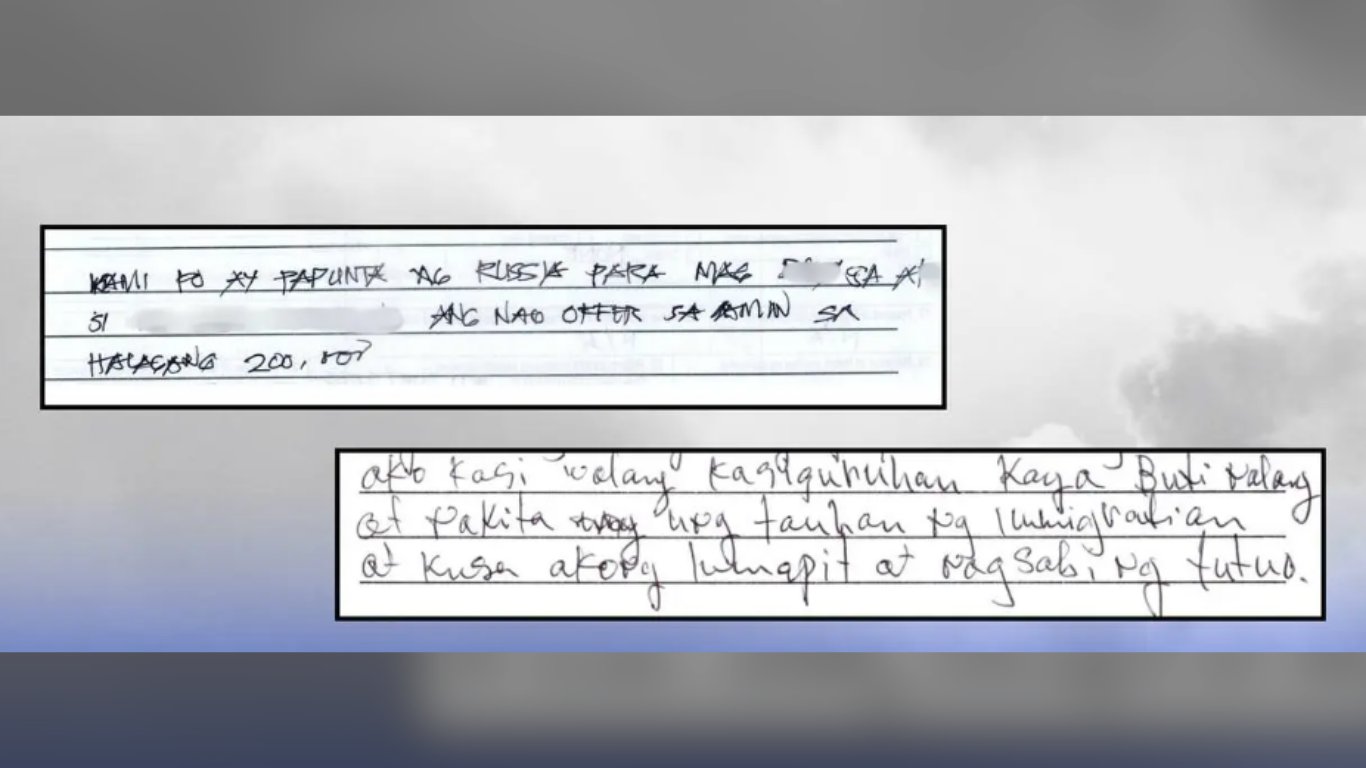 KAMI PO AY PAPUNTA NG RUSSIA PARA MAG
SI ANG NAG OFFER SA AMIN SA
HALAGANG 200,
ako kasi walang kasiguruhan kaya Buti nalang
at nakita ung tauhan ng Immigration
at kusa akong lumapit at nagsabi ng tutuo.